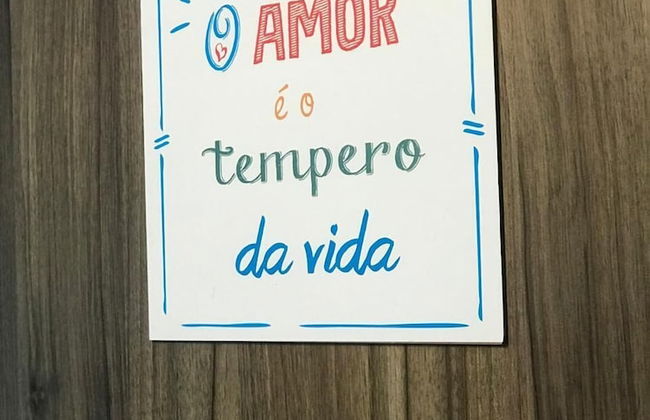 O AMOR
é o
tempero
da vida